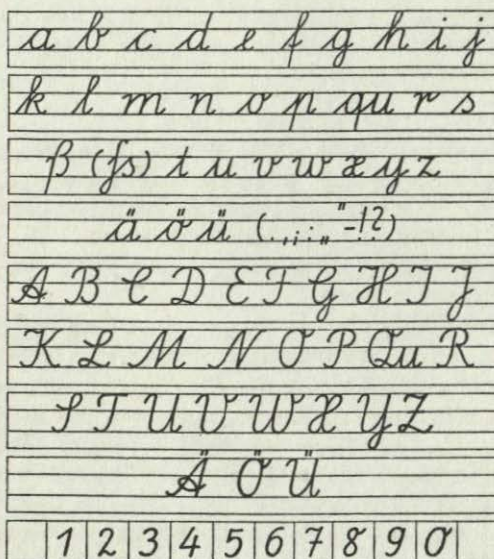 a b c d e f g h i j
k l m n o p qu r s
ß (ſs) t u v w x y z
ä ö ü (. , ; : „ " - ! ?)
A B C D E F G H I J
K L M N O P Qu R
S T U V W X Y Z
Ä Ö Ü
1 2 3 4 5 6 7 8 9 0